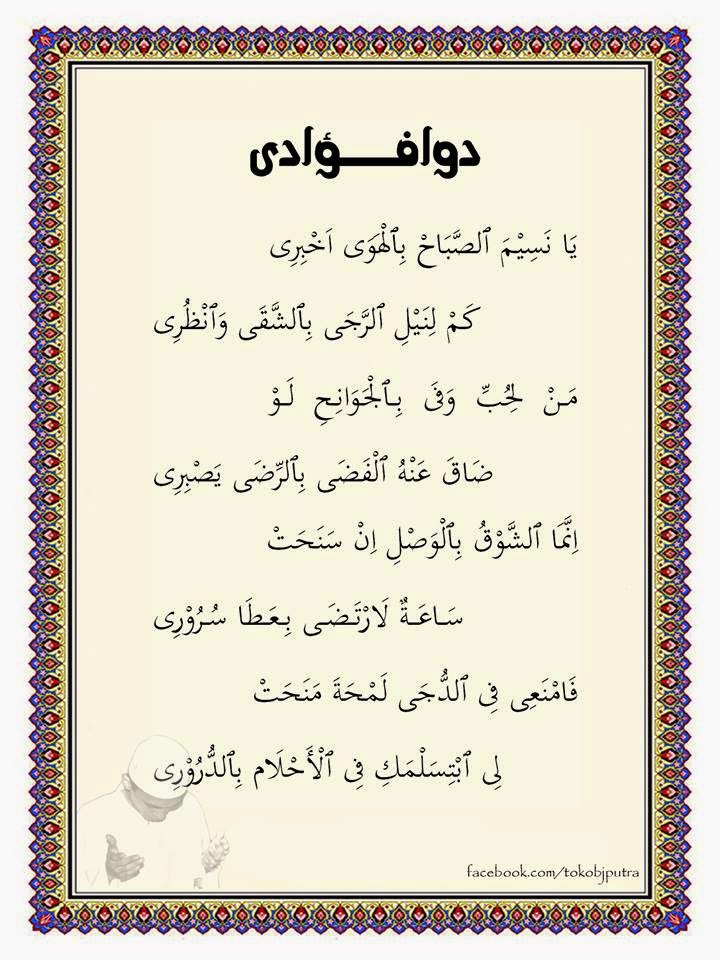 دوافـــؤادى
يَا نَسِيْمَ ٱلصَّبَاحْ بِٱلْهَوَى اَخْبِرِى
كَمْ لِنَيْلِ ٱلرَّجَى بِٱلشَّقَى وَٱنْظُرِى
مَنْ لِحُبِّ وَفَى بِٱلْجَوَانِحِ لَوْ
ضَاقَ عَنْهُ ٱلْفَضَى بِٱلرِّضَى يَصْبِرِى
اِنَّمَا ٱلشَّوْقُ بِٱلْوَصْلِ اِنْ سَنَحَتْ
سَاعَةٌ لَارْتَضَى بِعَطَا سُرُوْرِى
فَامْنَعِى فِى ٱلدُّجَى لَمْحَةَ مَنَحَتْ
لِى ٱبْتِسَلْمَكِ فِى ٱلْأَحْلَام بِٱلدُّرُوْرِى
facebook.com/tokobjputra